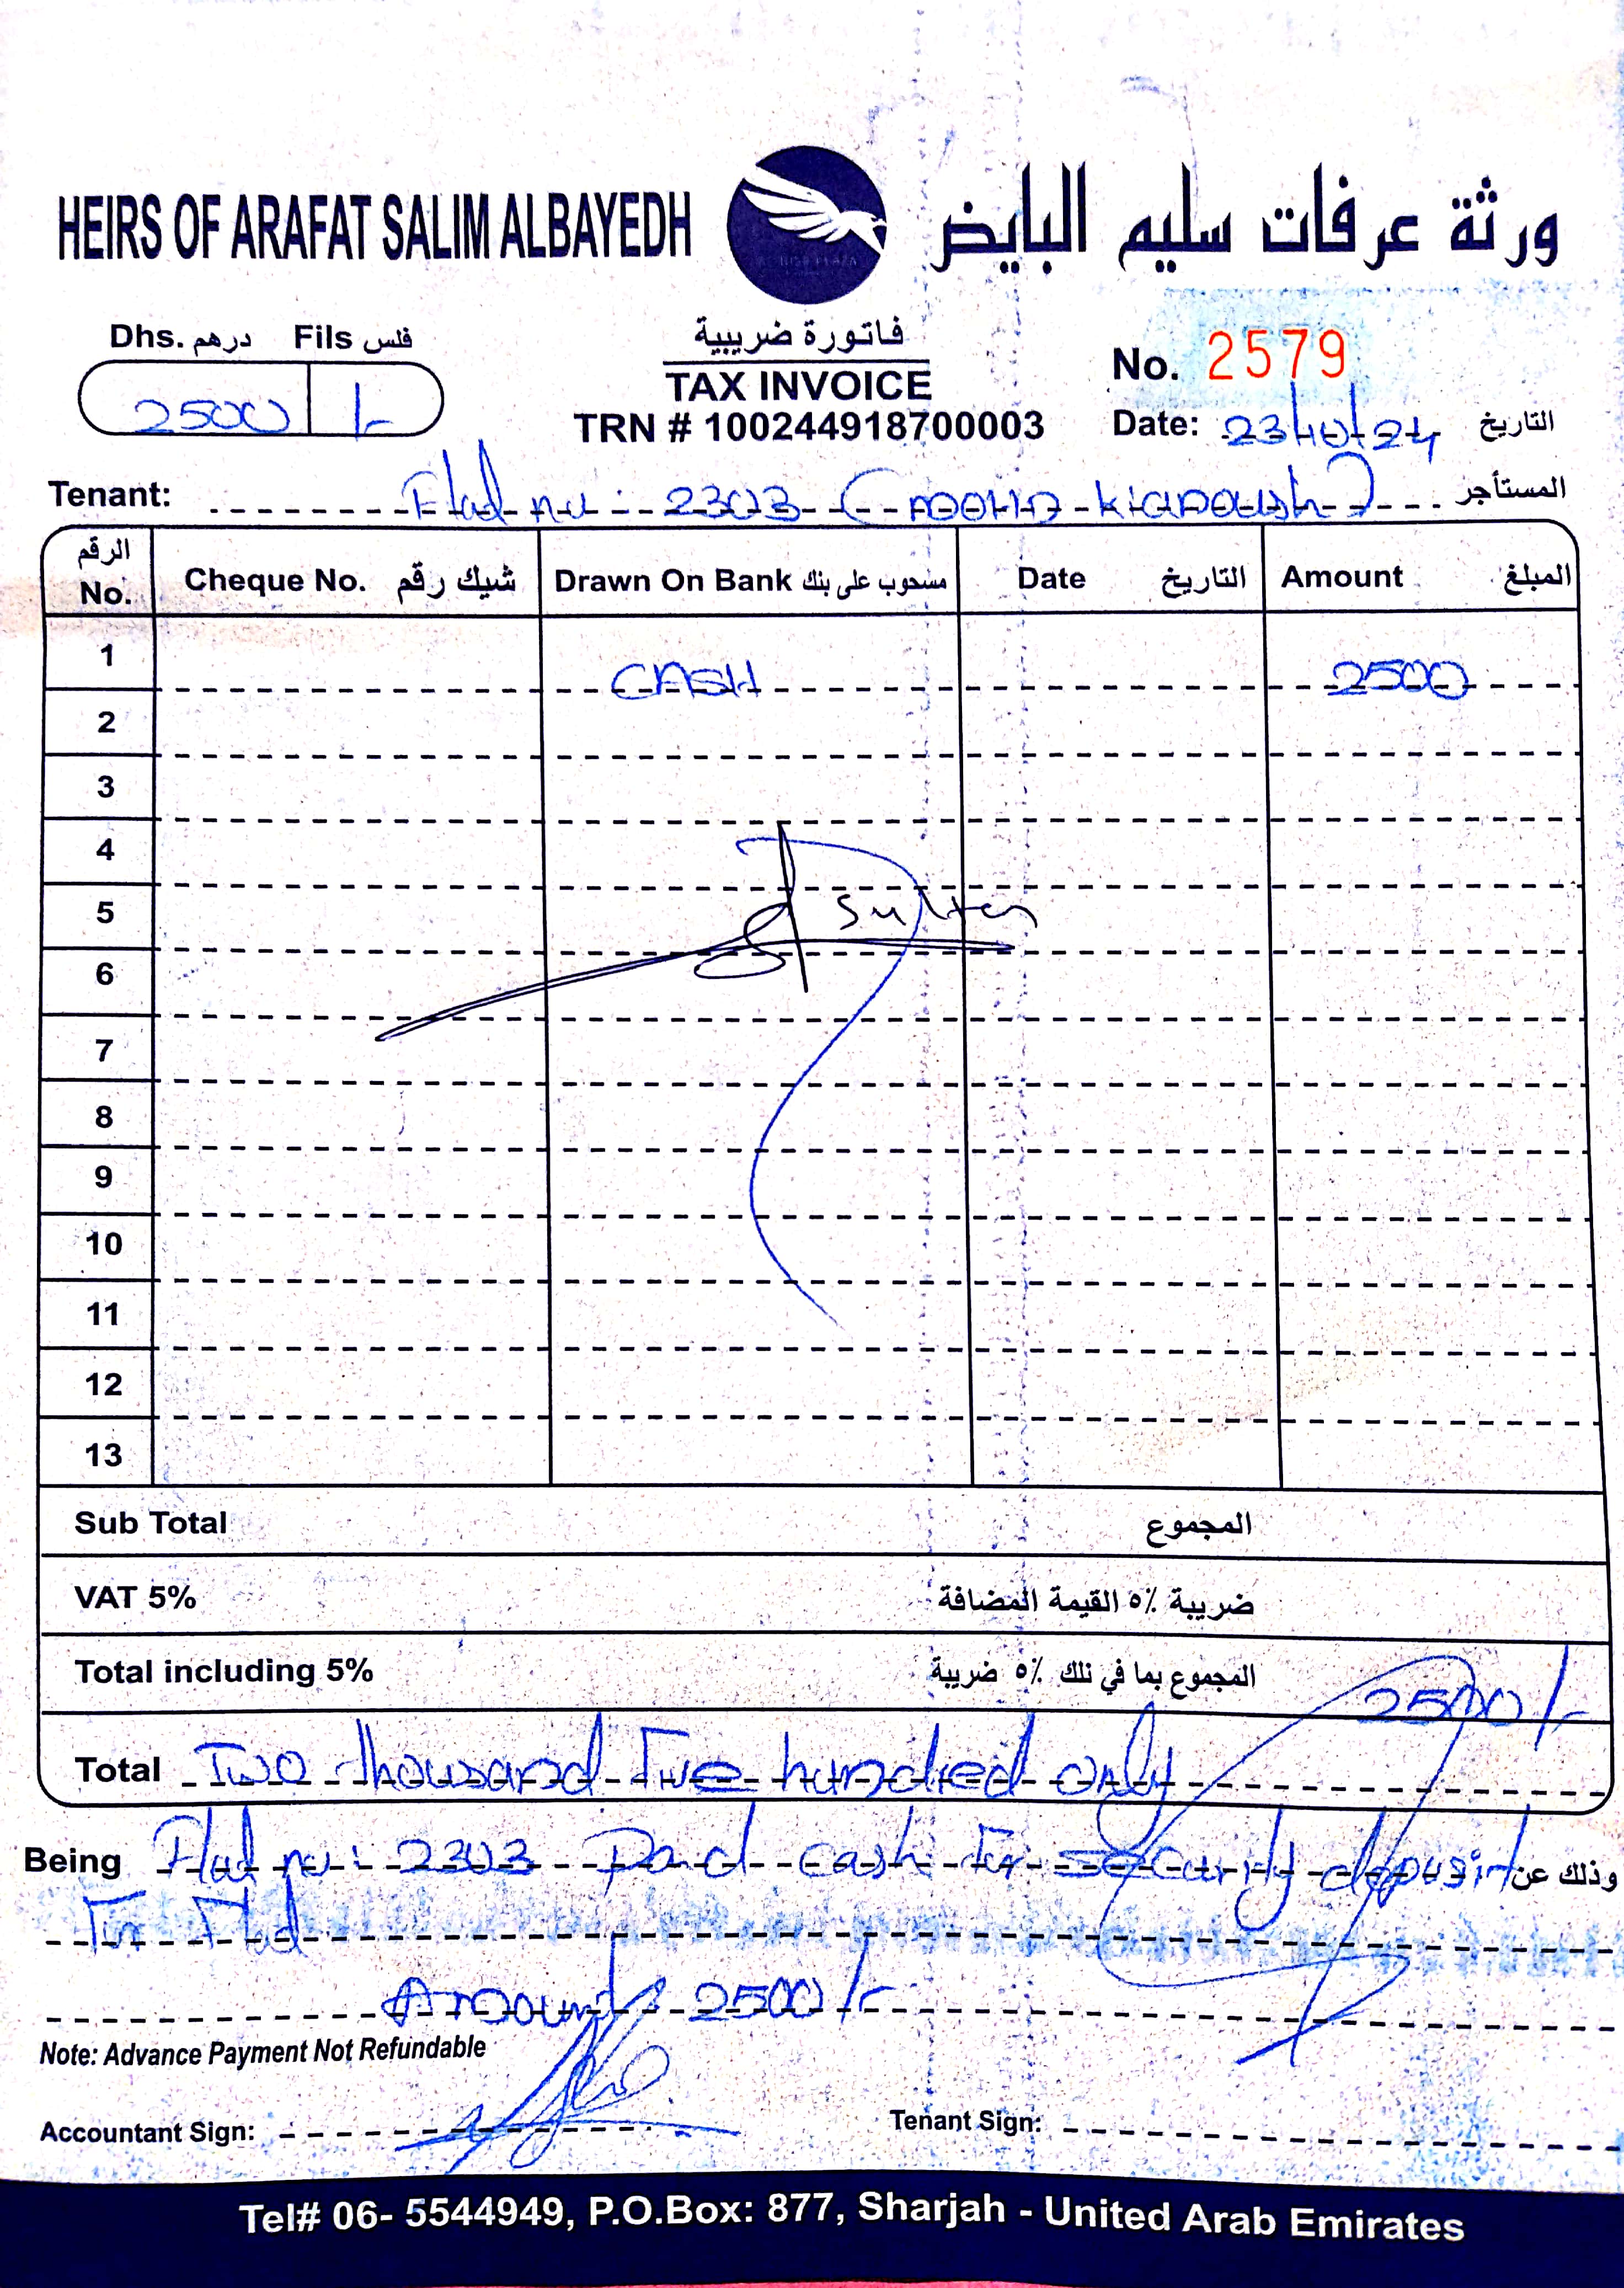 HEIRS OF ARAFAT SALIM ALBAYEDH ورثة عرفات سليم البايض
Dhs. درهم Fils فلس
2500 /-
فاتورة ضريبية
TAX INVOICE
TRN # 100244918700003
No. 2579
Date: 23/10/24 التاريخ
Tenant: Flat no : 2303 ( kianoush) المستأجر
الرقم No. Cheque No. شيك رقم Drawn On Bank مسحوب على بنك Date التاريخ Amount المبلغ
1 CASH 2500
2
3
4
5 Sultan
6
7
8
9
10
11
12
13
Sub Total المجموع
VAT 5% ضريبة ٥% القيمة المضافة
Total including 5% المجموع بما في ذلك ٥% ضريبة 2500/-
Total Two thousand Five hundred only
Being Flat no : 2303 Paid cash for security deposit وذلك عن
For Flat
Amount : 2500/-
Note: Advance Payment Not Refundable
Accountant Sign: Tenant Sign:
Tel# 06- 5544949, P.O.Box: 877, Sharjah - United Arab Emirates